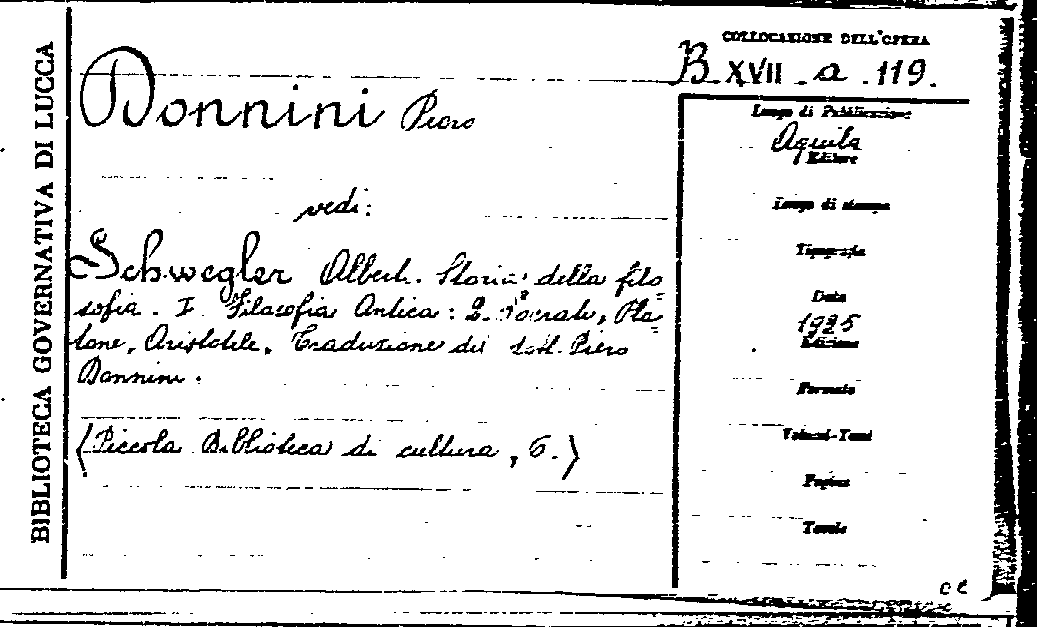 BIBLIOTECA GOVERNATIVA DI LUCCA
COLLOCAZIONE DELL'OPERA
B. XVII . a . 119.
Donnini Piero
vedi:
Schwegler Albert. Storia della filo=
sofia. I Filosofia Antica: 2. Socrate, Pla=
tone, Aristotele. Traduzione del dott. Piero
Donnini.
(Piccola Biblioteca di cultura, 6.)
Luogo di Pubblicazione
Aquila
Editore
Luogo di stampa
Tipografia
Data
1925
Edizione
Formato
Volumi-Tomi
Pagine
Tavole